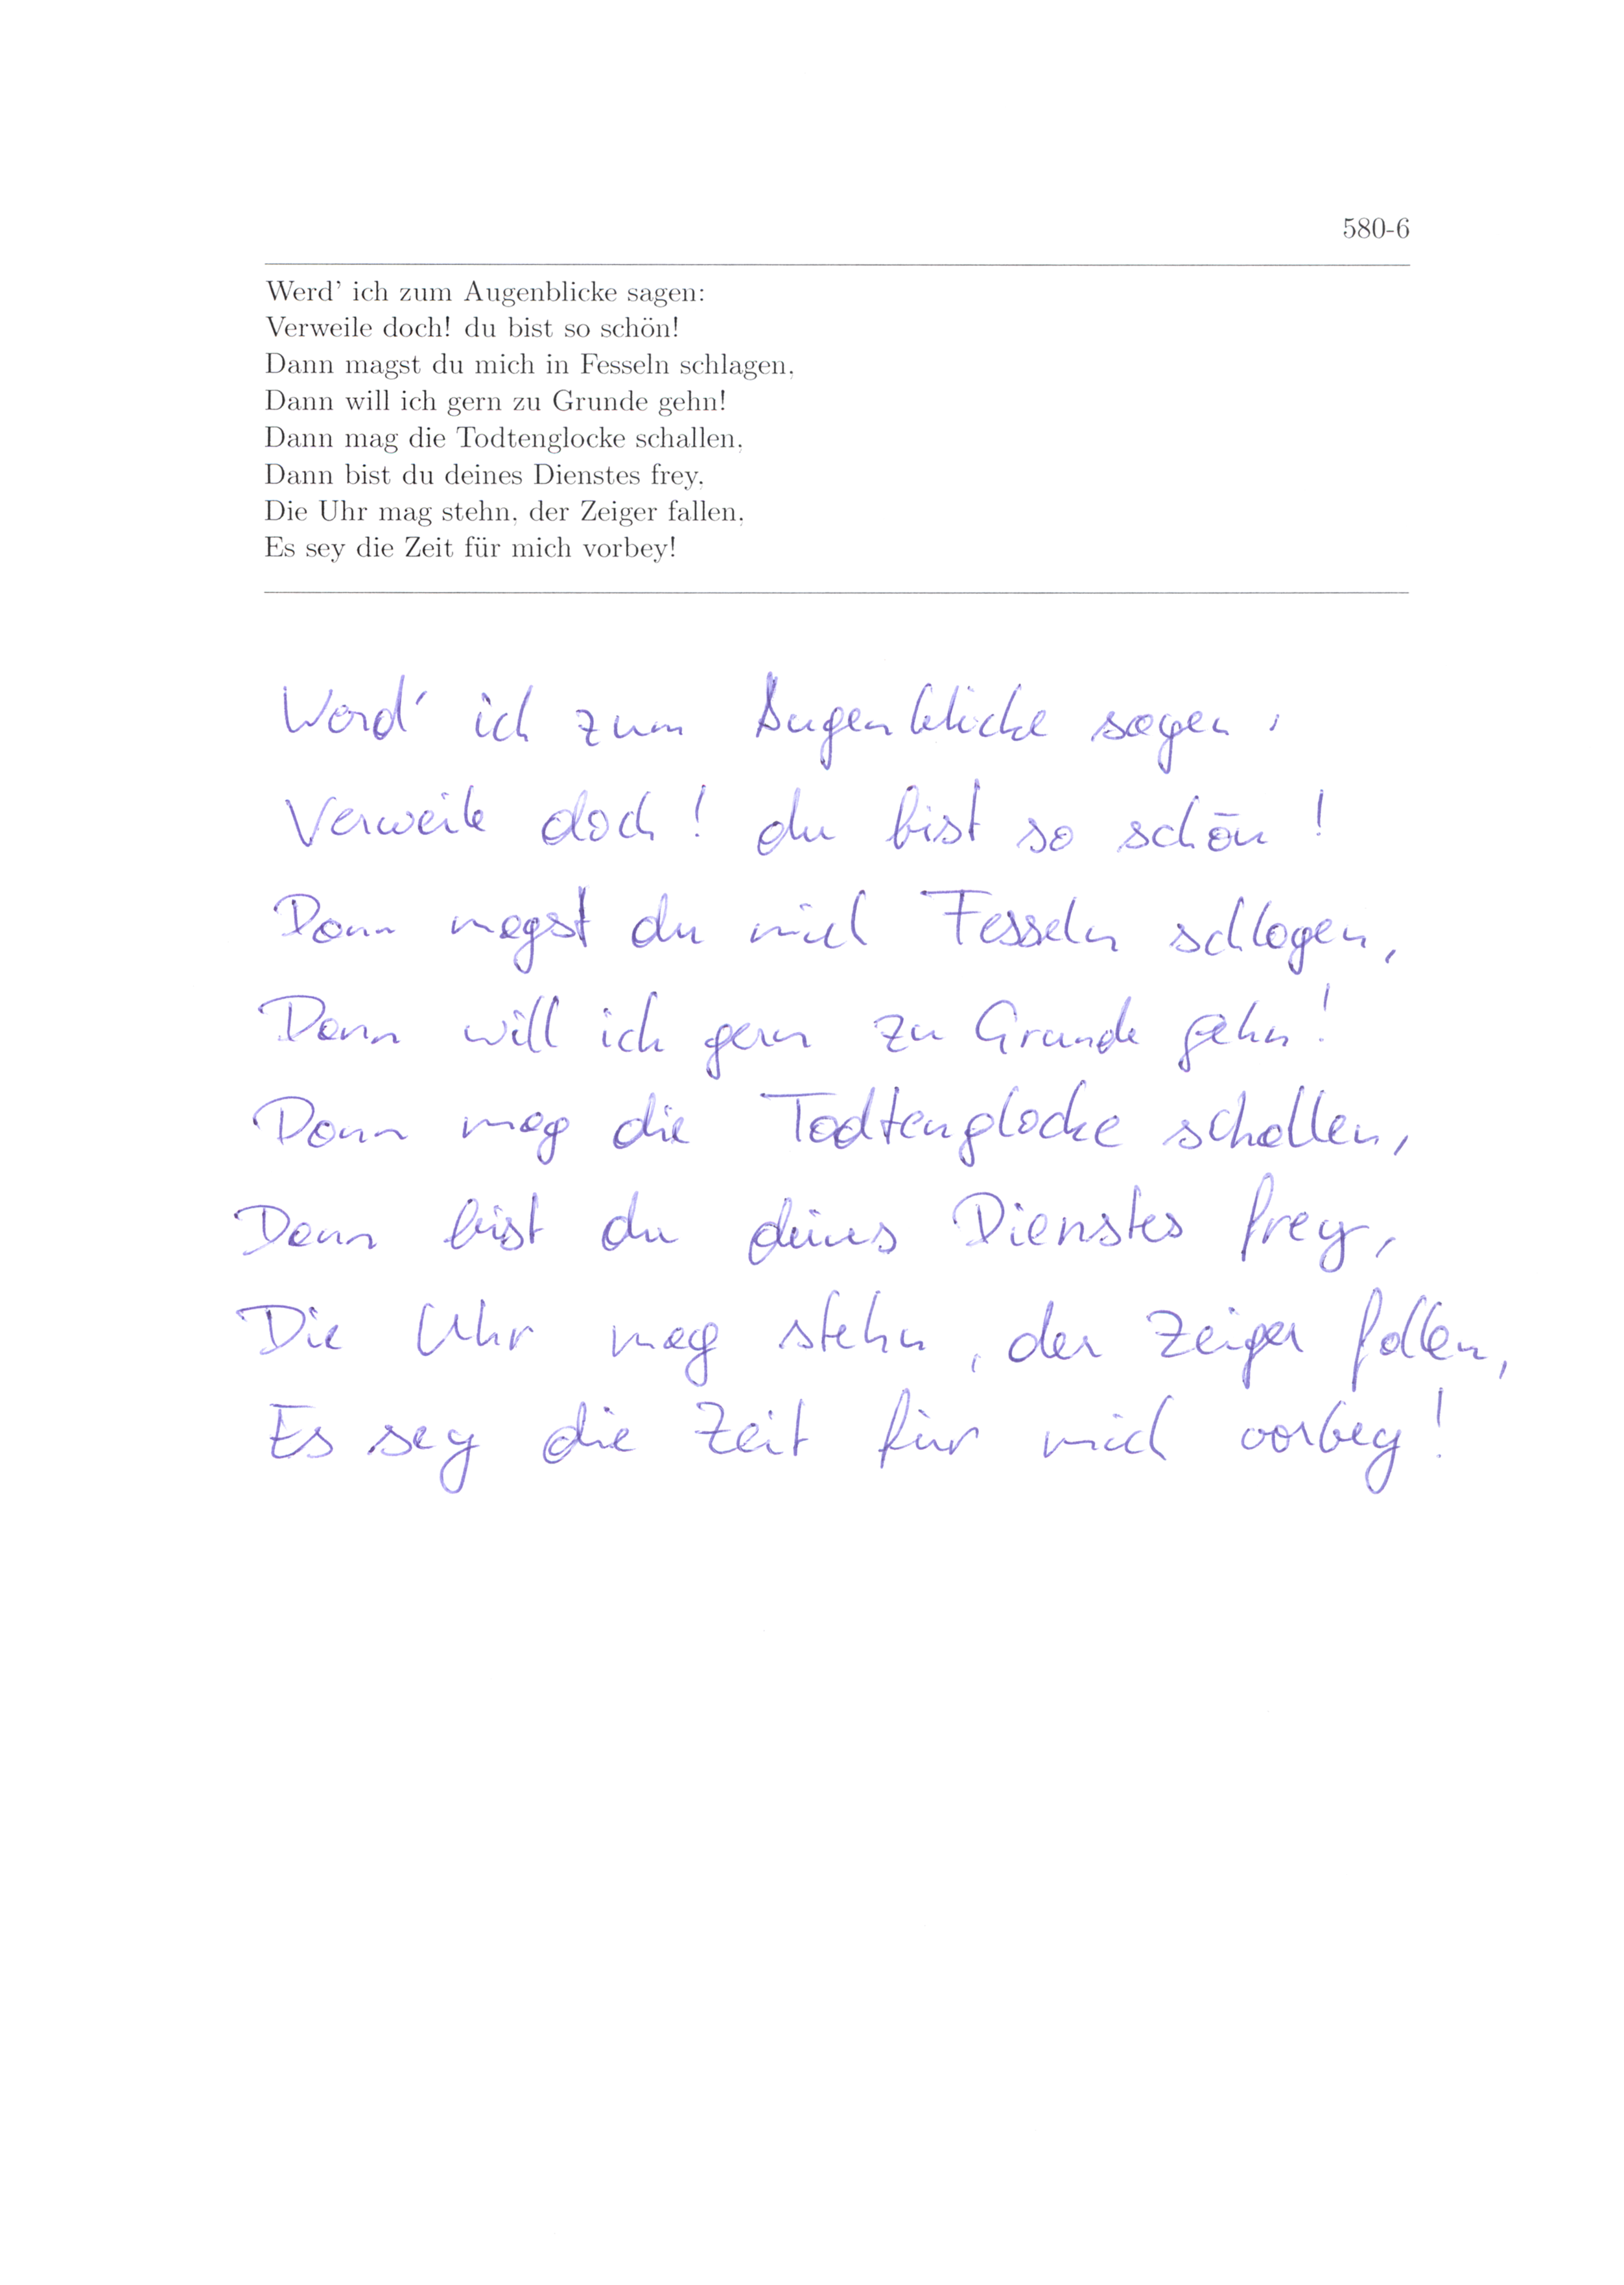 580-6
Werd' ich zum Augenblicke sagen:
Verweile doch! du bist so schön!
Dann magst du mich in Fesseln schlagen,
Dann will ich gern zu Grunde gehn!
Dann mag die Todtenglocke schallen,
Dann bist du deines Dienstes frey,
Die Uhr mag stehn, der Zeiger fallen,
Es sey die Zeit für mich vorbey!
Werd' ich zum Augenblicke sagen,
Verweile doch! du bist so schön!
Dann magst du mich Fesseln schlagen,
Dann will ich gern zu Grunde gehn!
Dann mag die Todtenglocke schallen,
Dann bist du deines Dienstes frey,
Die Uhr mag stehn, der Zeiger fallen,
Es sey die Zeit für mich vorbey!